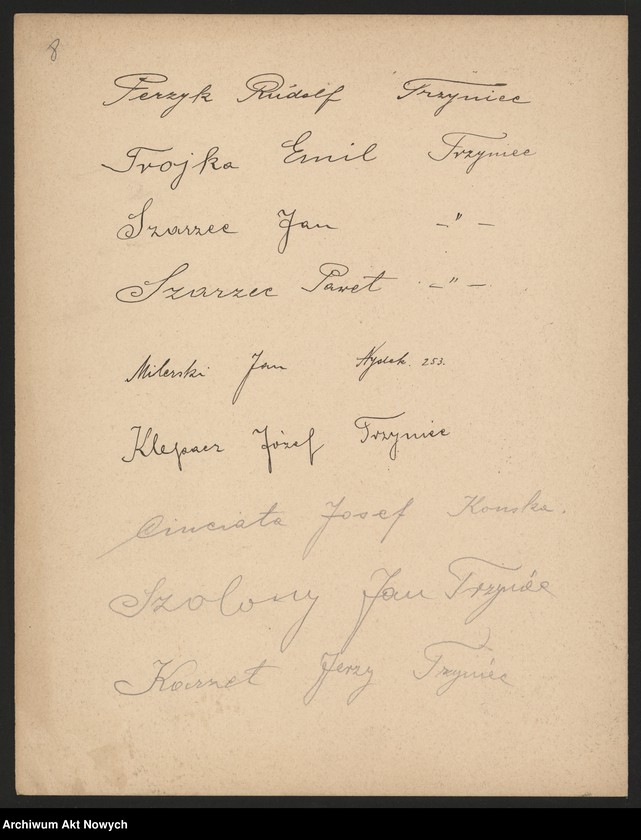 8
Perzyk Rudolf Trzyniec
Trojka Emil Trzyniec
Szarzec Jan -"-
Szarzec Paweł -"-
Milerski Jan Nydek. 253.
Klepacz Józef Trzyniec
Cinciała Josef Konska.
Szolony Jan Trzyniec
Jerzy Trzyniec
Archiwum Akt Nowych